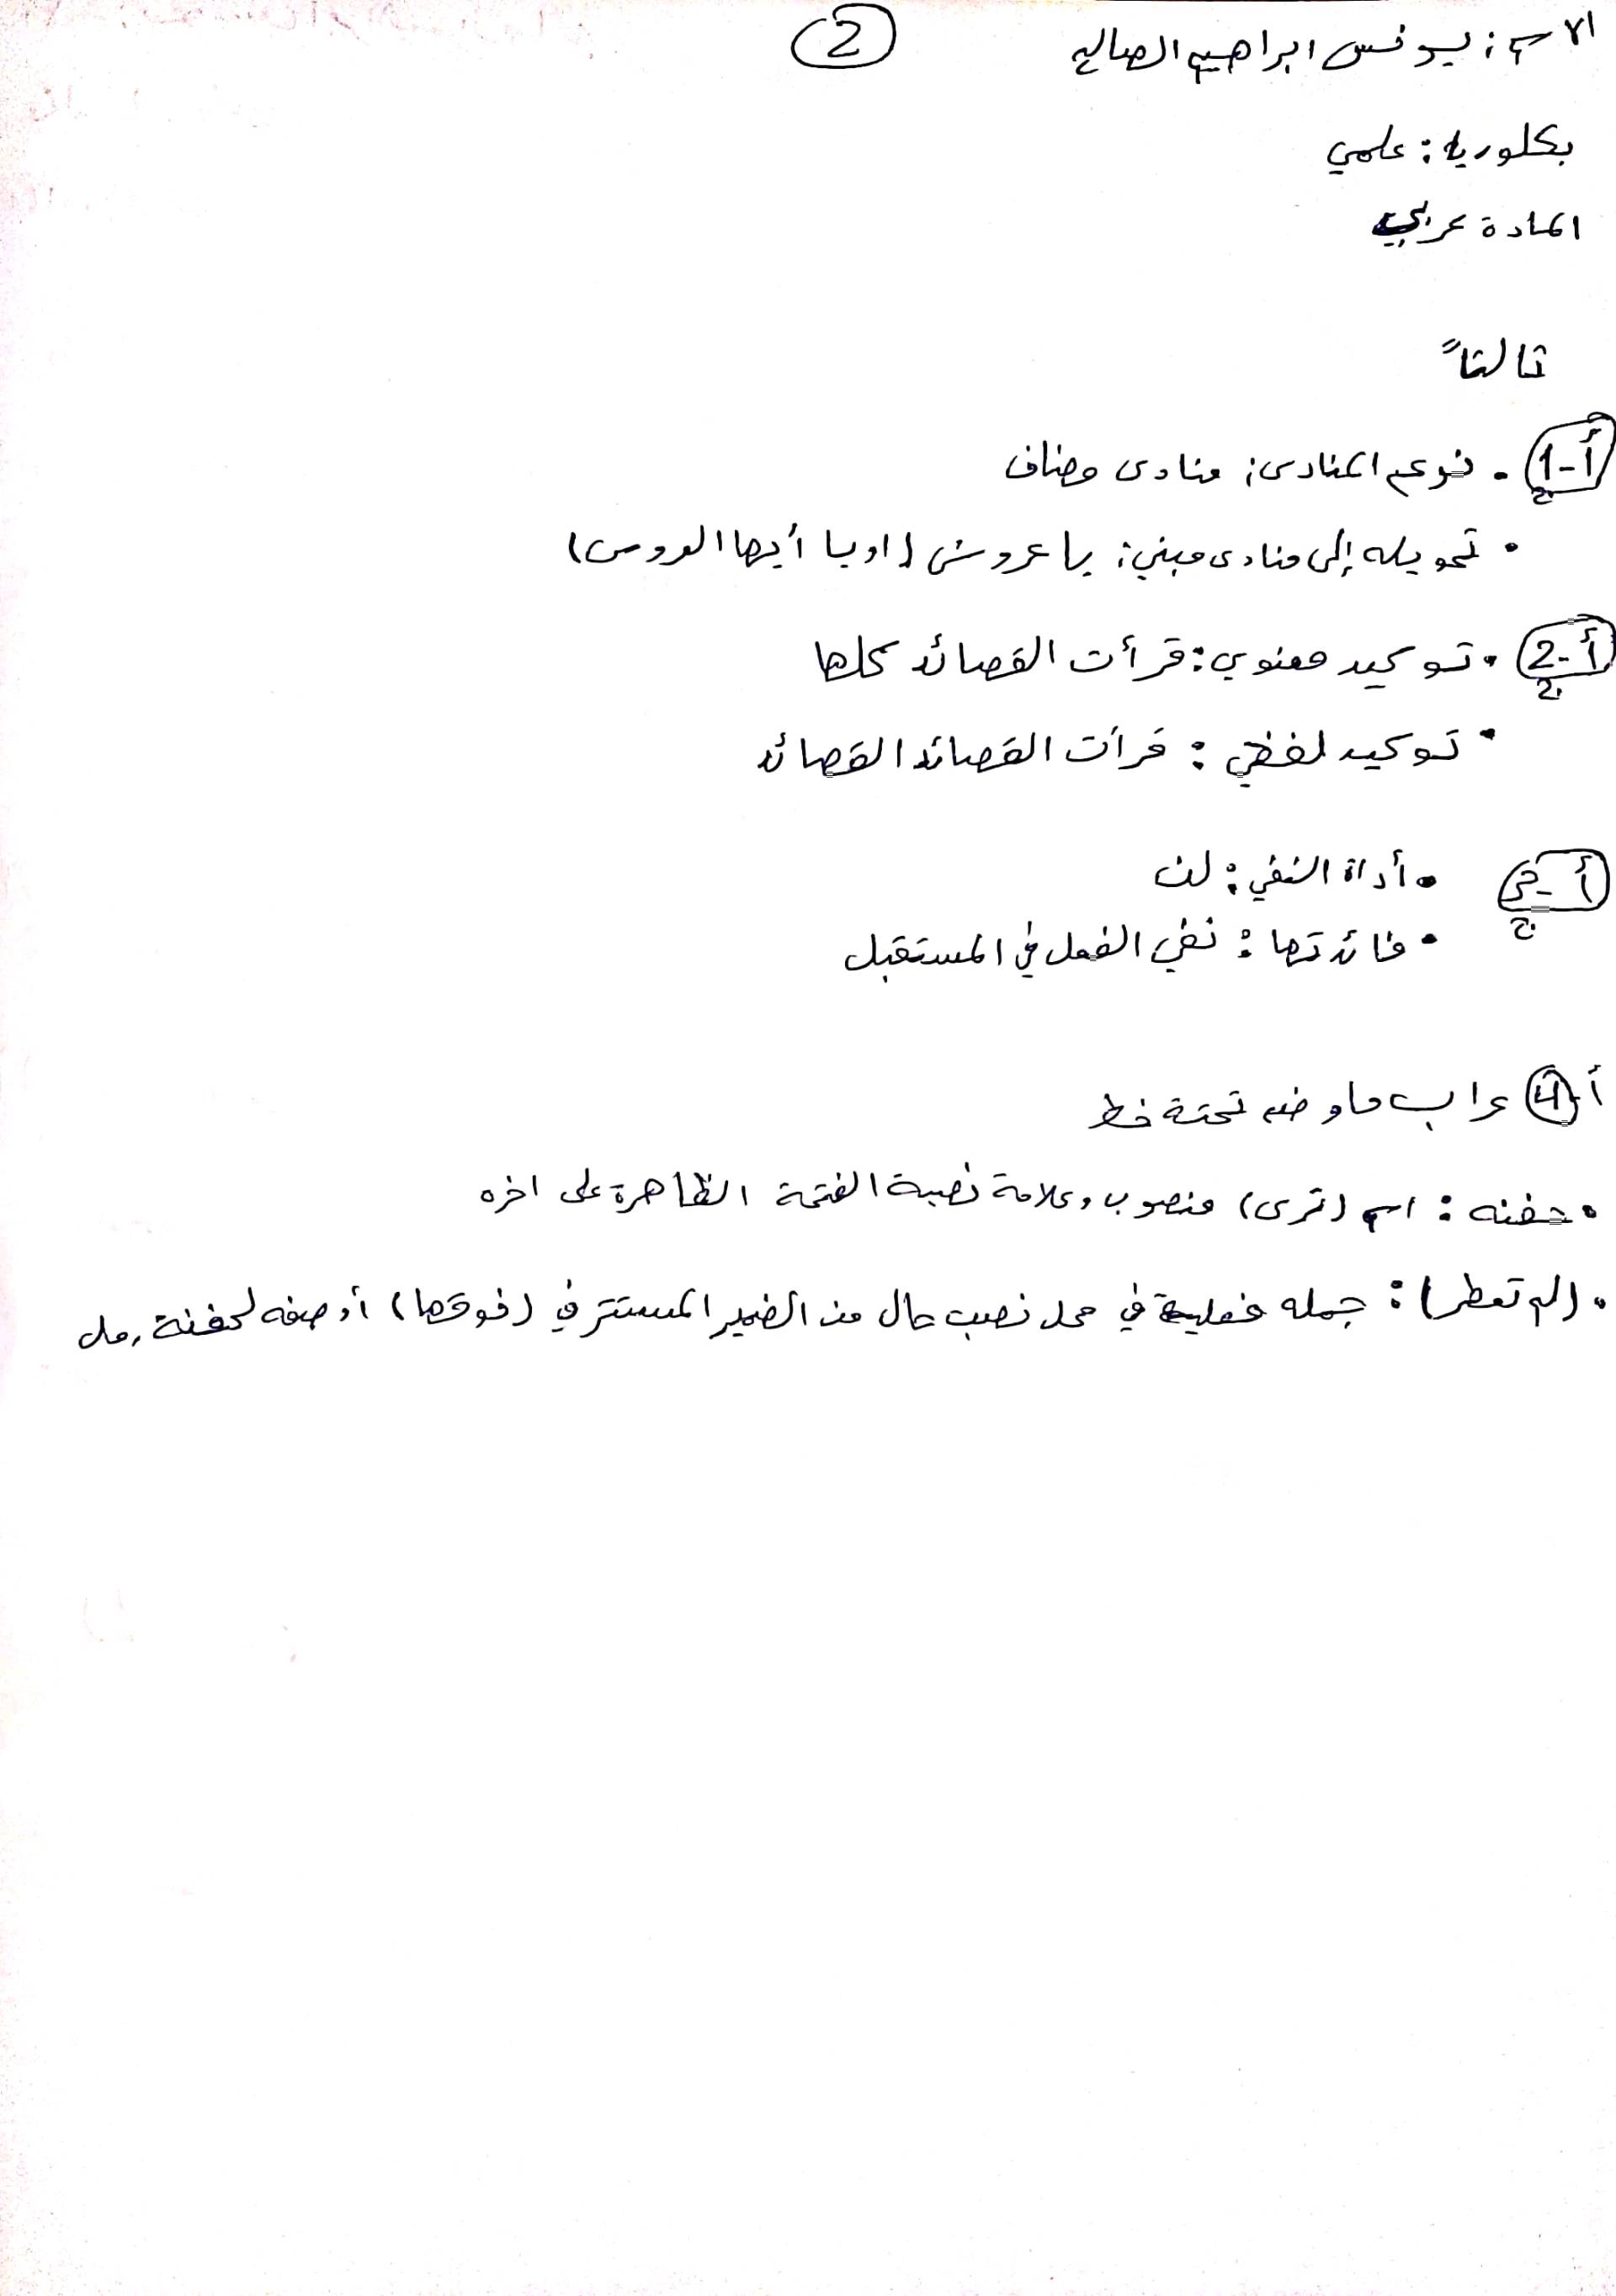 الاسم: يونس ابراهيم الصالح
2
بكلوريا: علمي
المادة عربي
ثالثاً
أ-1 • نوع المنادى: منادى مضاف
• تحويله إلى منادى مبني: يا عروس (او يا أيها العروس)
أ-2 • توكيد معنوي: قرأت القصائد كلها
• توكيد لفظي: قرأت القصائد القصائد
أ-3 • أداة النفي: لن
• فائدتها: نفي الفعل في المستقبل
أ-4 عراب ما وضع تحته خط
• حفنه: اسم (ترى) منصوب وعلامة نصبة الفتحة الظاهرة على اخره
• (لم تعطر): جمله فعلية في محل نصب حال من الضمير المستتر في (فوقها) أو صفه لحفنة رمل